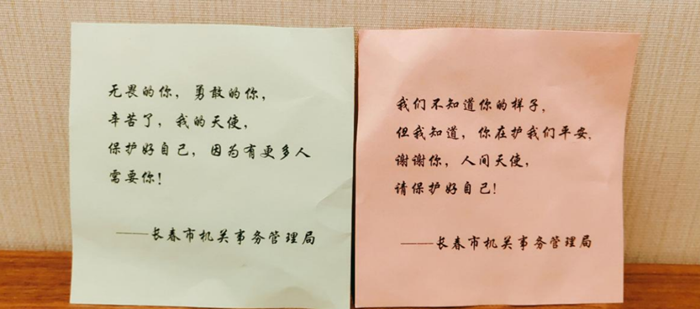 无畏的你，勇敢的你，
辛苦了，我的天使，
保护好自己，因为有更多人
需要你！
——长春市机关事务管理局
我们不知道你的样子，
但我知道，你在护我们平安。
谢谢你，人间天使，
请保护好自己！
——长春市机关事务管理局